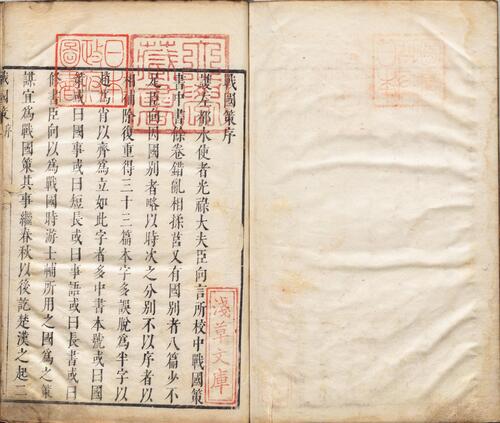 戰國策序
護左都水使者光祿大夫臣向言所校中戰國策
書中書餘卷錯亂相揉莒又有國別者八篇少不
足臣向因國別者略以時次之分別不以序者以
相補除復重得三十三篇本字多誤脫為半字以
趙為肖以齊為立如此字者多中書本號或曰國
策或曰國事或曰短長或曰事語或曰長書或曰
修書臣向以為戰國時游士輔所用之國為之策
謀宜為戰國策其事繼春秋以後訖楚漢之起二
戰國策序
淺草文庫
日本政府圖書